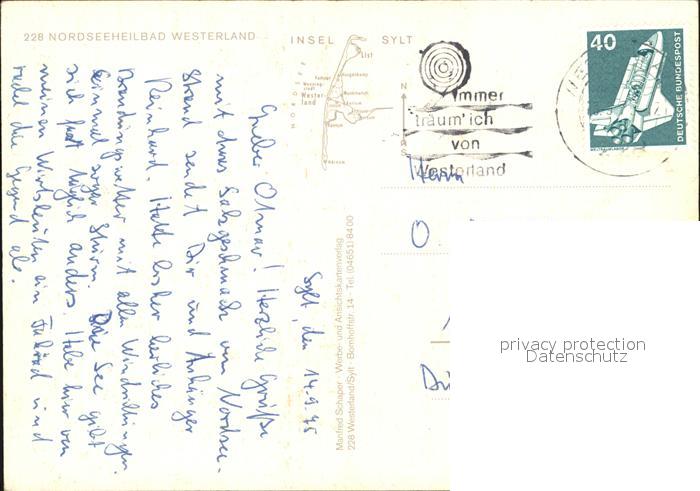 228 NORDSEEHEILBAD WESTERLAND
INSEL SYLT
List
Westerland
NORDSEE
40
DEUTSCHE BUNDESPOST
Immer
träum' ich
von
Westerland
Herrn
O
Manfred Schaper · Werbe- und Ansichtskartenverlag
228 Westerland/Sylt · Bomhoffstr. 14 · Tel. (04651) 8400
Sylt, den 14.9.75
Lieber Otmar! Herzliche Grüße
mit etwas Salzgeschmack vom Nordsee-
strand sendet Dir und Anhänger
Reinhard. Hatte bisher herrliches
Brandungswetter mit allen Windrichtungen.
Einmal sogar Sturm. Die See gibt
sich fast täglich anders. Habe hier von
meinen Wirtsleuten ein Fahrrad und
radle die Gegend ab.
privacy protection
Datenschutz